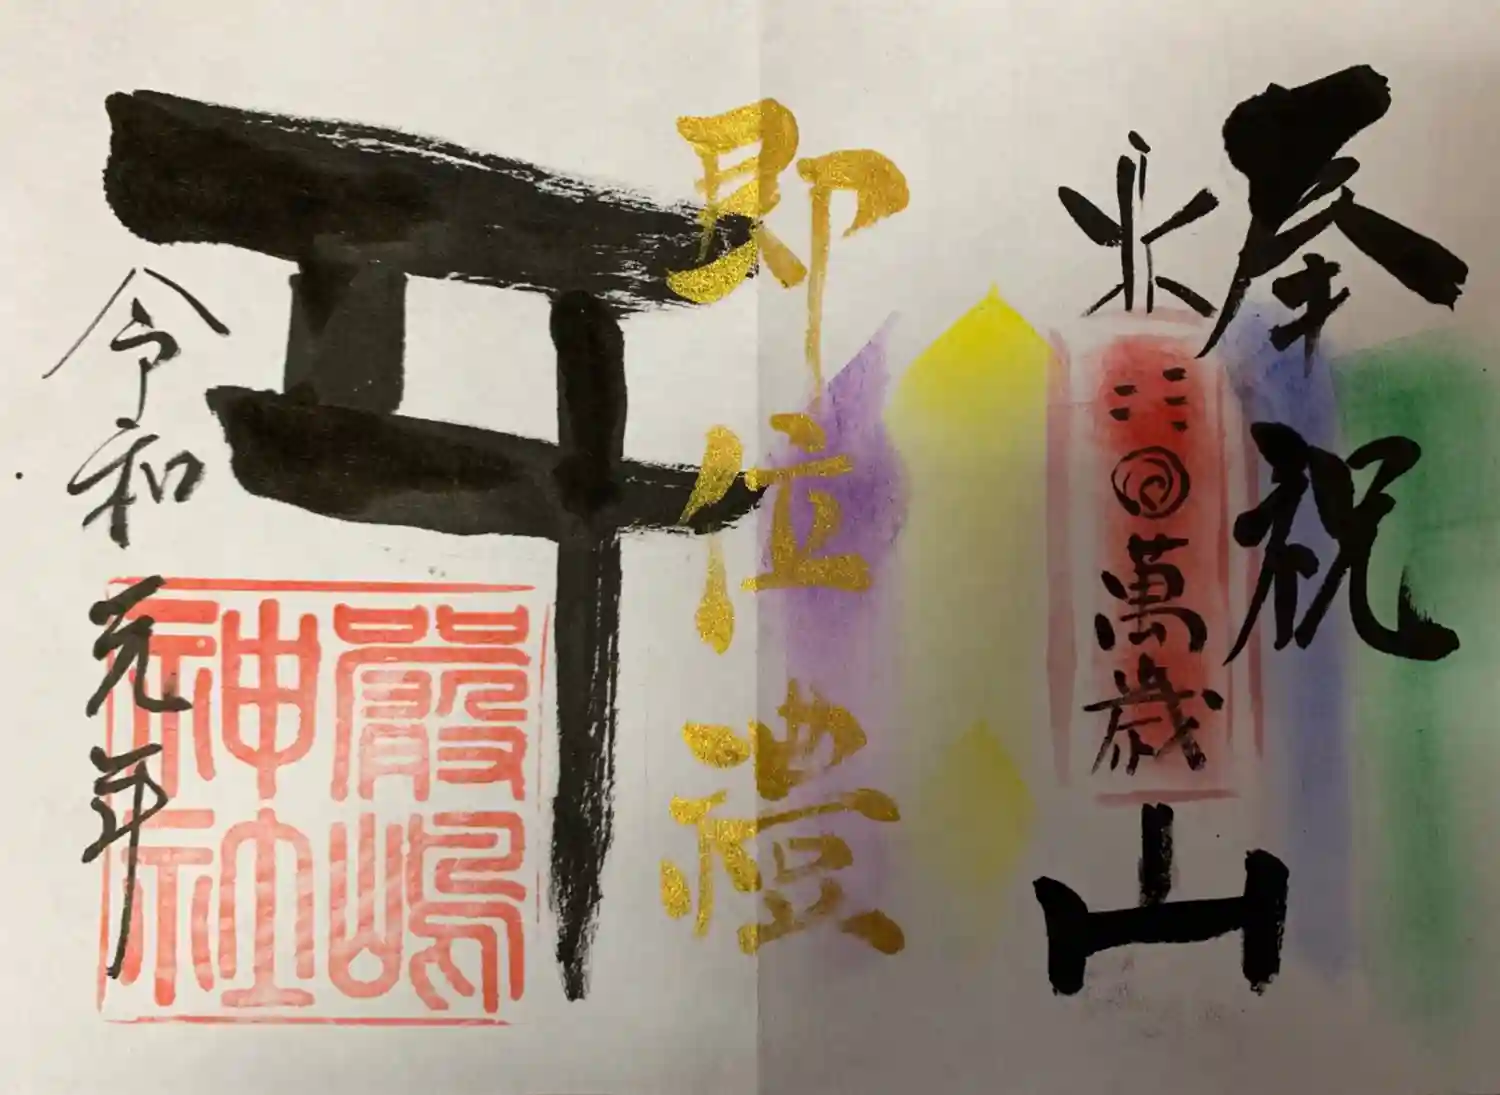 奉祝
萬歳
山
即位禮
令和元年
嚴嶋
神社